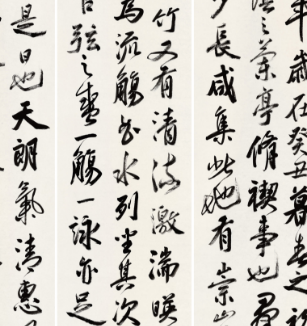 年歲在癸丑暮春之初
之蘭亭脩禊事也羣
少長咸集此地有崇山
竹又有清流激湍暎
為流觴曲水列坐其次
弦之盛一觴一詠亦足
是日也天朗氣清惠